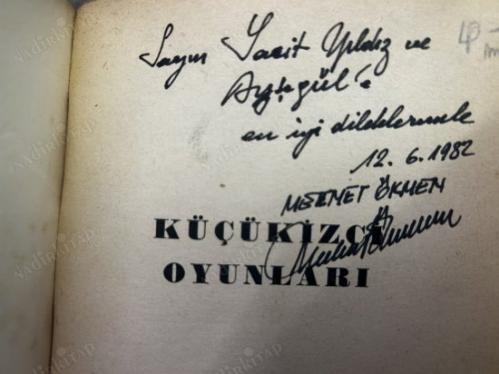 Sayın Yacit Yıldız ve
Ayşegül'e
en iyi dileklerimle
12.6.1982
MEHMET ÖKMEN
KÜÇÜKİZCİ
OYUNLARI
nadirkitap